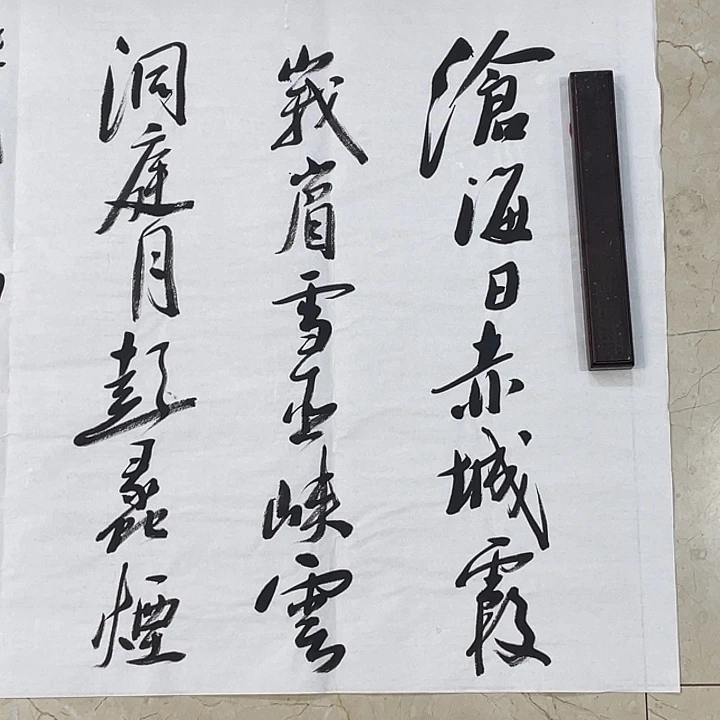 滄海日赤城霞
峩眉雪巫峡雲
洞庭月彭蠡煙